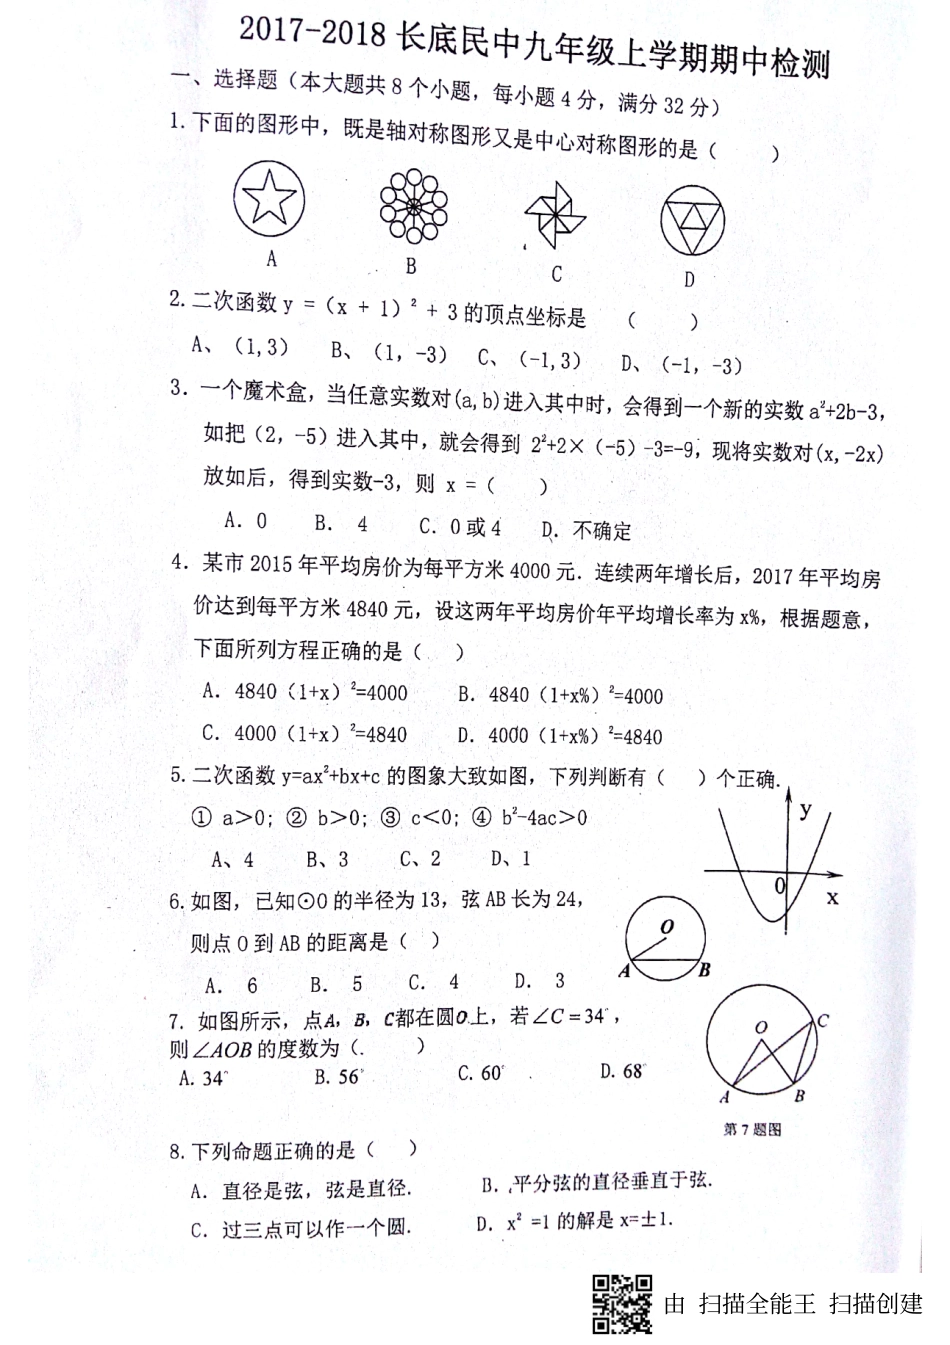 2017-2018 长底民中九年级上学期期中检测
一、选择题（本大题共 8 个小题，每小题 4 分，满分 32 分）
1.下面的图形中，既是轴对称图形又是中心对称图形的是（　　）
A B C D
2.二次函数 y =（x + 1）² + 3 的顶点坐标是 （　　）
A、（1,3） B、（1，-3） C、（-1,3） D、（-1，-3）
3. 一个魔术盒，当任意实数对(a,b)进入其中时，会得到一个新的实数 a²+2b-3，
如把（2，-5）进入其中，就会得到 2²+2×（-5）-3=-9，现将实数对(x,-2x)
放如后，得到实数-3，则 x =（　　）
A. 0 B. 4 C. 0 或 4 D. 不确定
4. 某市 2015 年平均房价为每平方米 4000 元．连续两年增长后，2017 年平均房
价达到每平方米 4840 元，设这两年平均房价年平均增长率为 x%，根据题意，
下面所列方程正确的是（　　）
A. 4840（1+x）²=4000 B. 4840（1+x%）²=4000
C. 4000（1+x）²=4840 D. 4000（1+x%）²=4840
5.二次函数 y=ax²+bx+c 的图象大致如图，下列判断有（　　）个正确.
① a＞0；② b＞0；③ c＜0；④ b²-4ac＞0
A、4 B、3 C、2 D、1
y
0
x
6.如图，已知⊙O 的半径为 13，弦 AB 长为 24，
则点 O 到 AB 的距离是（　　）
A. 6 B. 5 C. 4 D. 3
O
A B
7. 如图所示，点A，B，C都在圆O上，若∠C=34°，
则∠AOB 的度数为（　　）
A. 34° B. 56° C. 60° D. 68°
O C
A B
第 7 题图
8.下列命题正确的是（　　）
A. 直径是弦，弦是直径. B. 平分弦的直径垂直于弦.
C. 过三点可以作一个圆. D. x² =1 的解是 x=±1.
由 扫描全能王 扫描创建